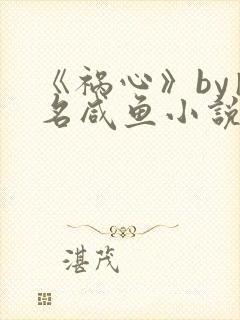 《祸心》by
名咸鱼小説
湛茂